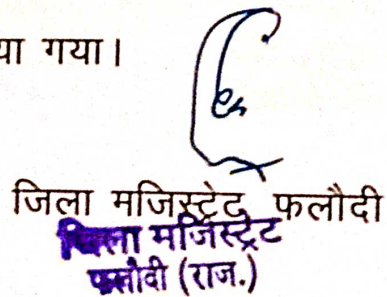 या गया।
जिला मजिस्ट्रेट फलौदी
जिला मजिस्ट्रेट
फलौदी (राज.)